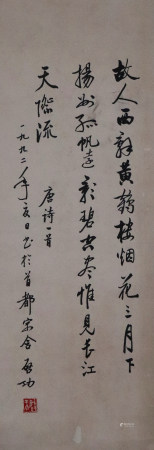 故人西辭黄鶴樓烟花三月下
揚州孤帆遠影碧空尽惟見長江
天際流
唐诗一首
一九九二年夏日書於首都宋舍 启功